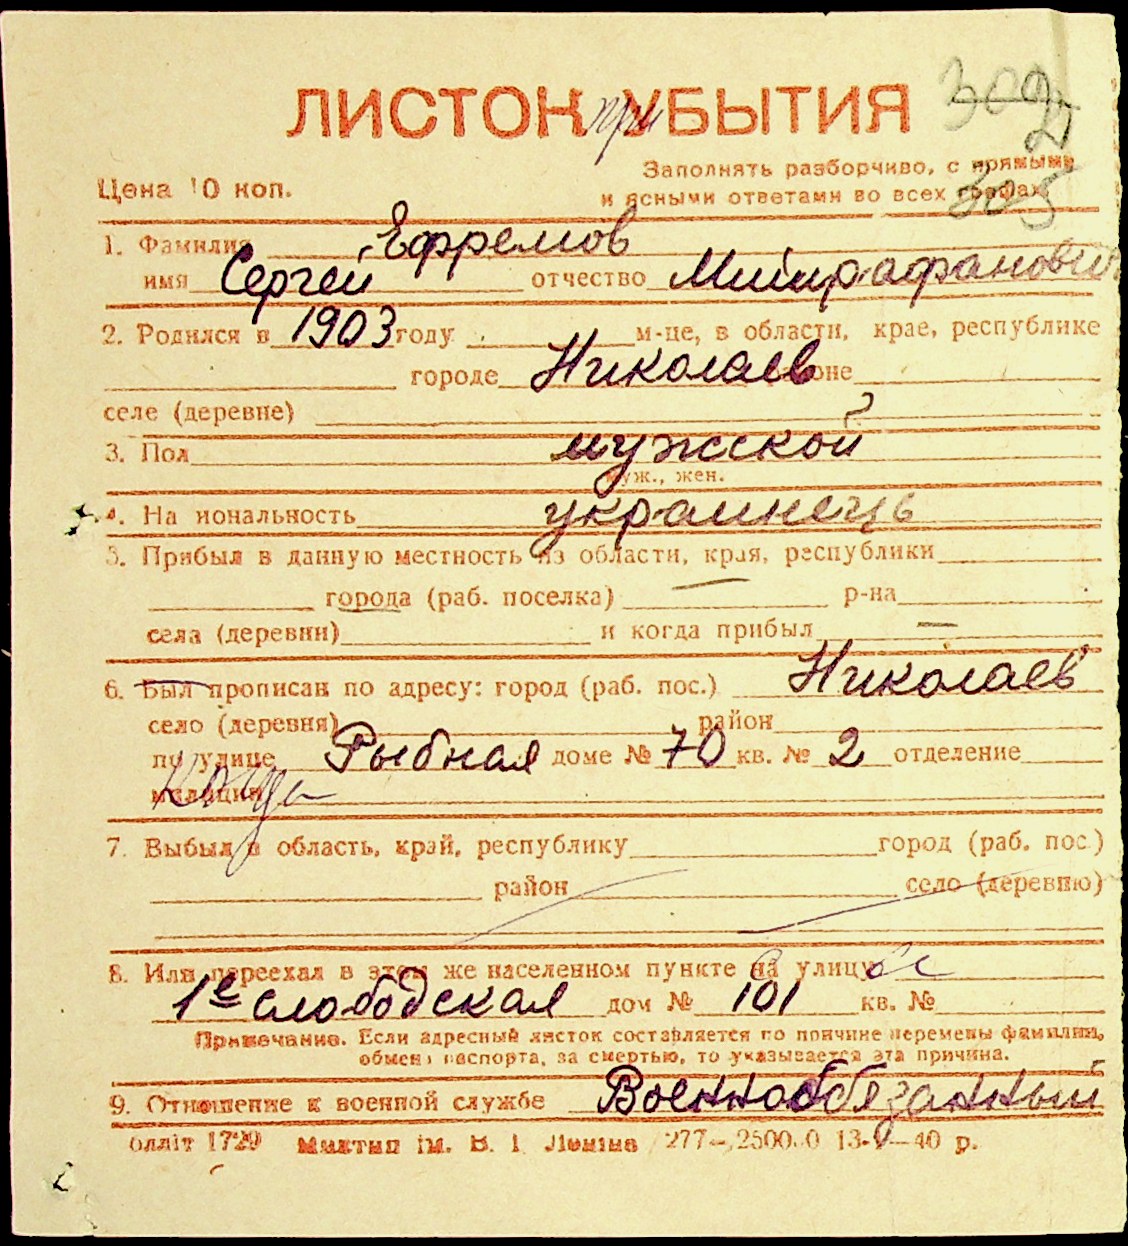 ЛИСТОК при УБЫТИЯ
302
Заполнять разборчиво, с прямыми
Цена 10 коп.
и ясными ответами во всех графах
305
1. Фамилия Ефремов
имя Сергей отчество Митрафанович
2. Родился в 1903 году м-це, в области, крае, республике
городе Николаев районе
селе (деревне)
3. Пол мужской
муж., жен.
4. Национальность украинець
5. Прибыл в данную местность из области, края, республики
города (раб. поселка) — р-на
села (деревни) и когда прибыл —
6. Был прописан по адресу: город (раб. пос.) Николаев
село (деревня) район
по улице Рыбная доме № 70 кв. № 2 отделение
милиции
7. Выбыл в область, край, республику город (раб. пос.)
район село (деревню)
8. Или переехал в этом же населенном пункте на улицу с
1е слободская дом № 101 кв. №
Примечание. Если адресный листок составляется по причине перемены фамилии,
обмена паспорта, за смертью, то указывается эта причина.
9. Отношение к военной службе Военнообязанный
олліт 1729 Миктип ім. В. І. Леніна 277—
40 р.